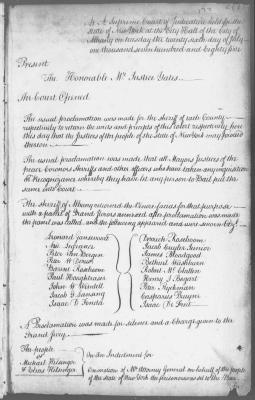 At a Supreme Court of Judicature held for the
State of New York at the City Hall of the City of
Albany on tuesday the twenty sixth day of July
one thousand seven hundred and Eighty five
Present
The Honorable Mr. Justice Yates.
The Court Opened.
The usual proclamation was made for the sheriff of each County
respectively to return the writs and precepts of the Court respectively
this day that the Justices of the people of the State of New York may proceed
thereon
The usual proclamation was made that all Mayors Justices of the
peace Coroners Sheriffs and other officers who have taken any inquisition
or Recognizance whereby they have let any person to Bail put the
same into Court.
The Sheriff of Albany returned the Venire facias for that purpose
with a panel of Grand Jurors annexed. after proclamation was made
the panel was called, and the following appeared and were sworn
Leonard Gansevoort
Peter Van Bergen
Barent Roseboom
Paul Hougktaum
John H. Wendell
Jacob G. Lansing
Isaac D. Fonda
Dirrick Roseboom
Jacob Cuyler Junior
James Bloodgood
Bethuel Washburn
Robert McClallen
Henry I. Bogart
Peter Ryckman
Casparius Bruyn
Isaac D. Fruit
A Proclamation was made for silence and a Charge given to the
Grand Jury
The people
vs
Michael Witsinger
& Tobias Witsinger
On An Indictment for
On motion of Mr. Attorney General on behalf of the people
of the State of New York the prisoners was set to the Bar